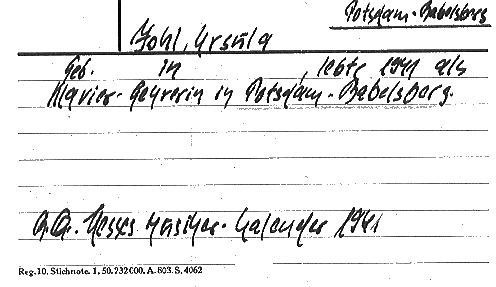 Potsdam-Babelsberg
Johl, Ursula
Geb. in , lebte 1941 als
Klavier-Lehrerin in Potsdam-Babelsberg.
Hesses Musiker-Kalender 1941
Reg. 10. Stichnote. 1, 50. 232000. A. 803. S. 4062